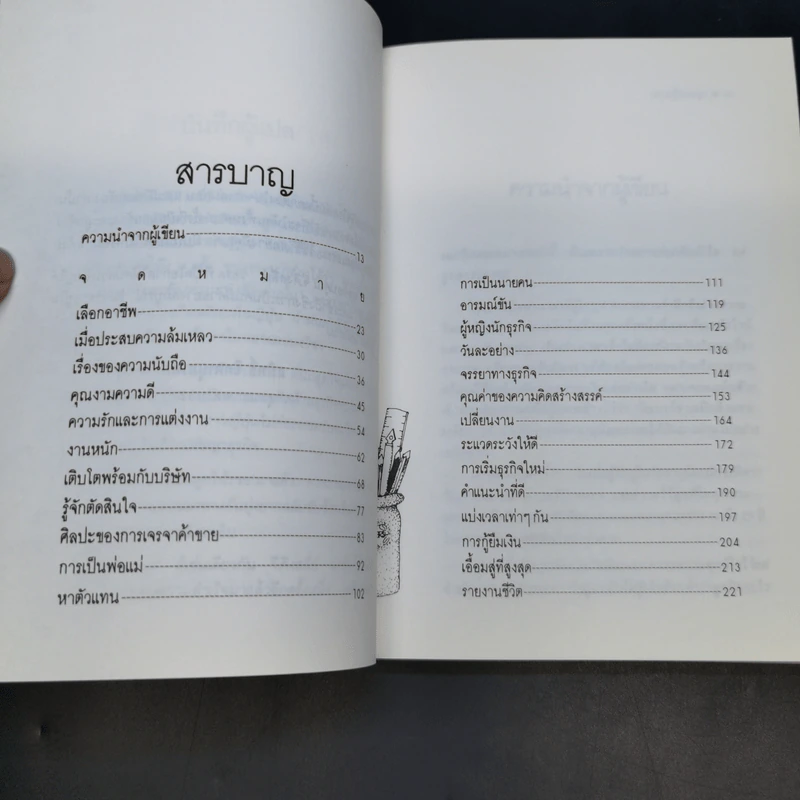 สารบาญ
ความนำจากผู้เขียน 13
จ ด ห ม า ย
เลือกอาชีพ 23
เมื่อประสบความล้มเหลว 30
เรื่องของความนับถือ 36
คุณงามความดี 45
ความรักและการแต่งงาน 54
งานหนัก 62
เติบโตพร้อมกับบริษัท 68
รู้จักตัดสินใจ 77
ศิลปะของการเจรจาค้าขาย 83
การเป็นพ่อแม่ 92
หาตัวแทน 102
การเป็นนายคน 111
อารมณ์ขัน 119
ผู้หญิงนักธุรกิจ 125
วันละอย่าง 136
จรรยาทางธุรกิจ 144
คุณค่าของความคิดสร้างสรรค์ 153
เปลี่ยนงาน 164
ระแวดระวังให้ดี 172
การเริ่มธุรกิจใหม่ 179
คำแนะนำที่ดี 190
แบ่งเวลาเท่าๆ กัน 197
การกู้ยืมเงิน 204
เอื้อมสู่ที่สูงสุด 213
รายงานชีวิต 221